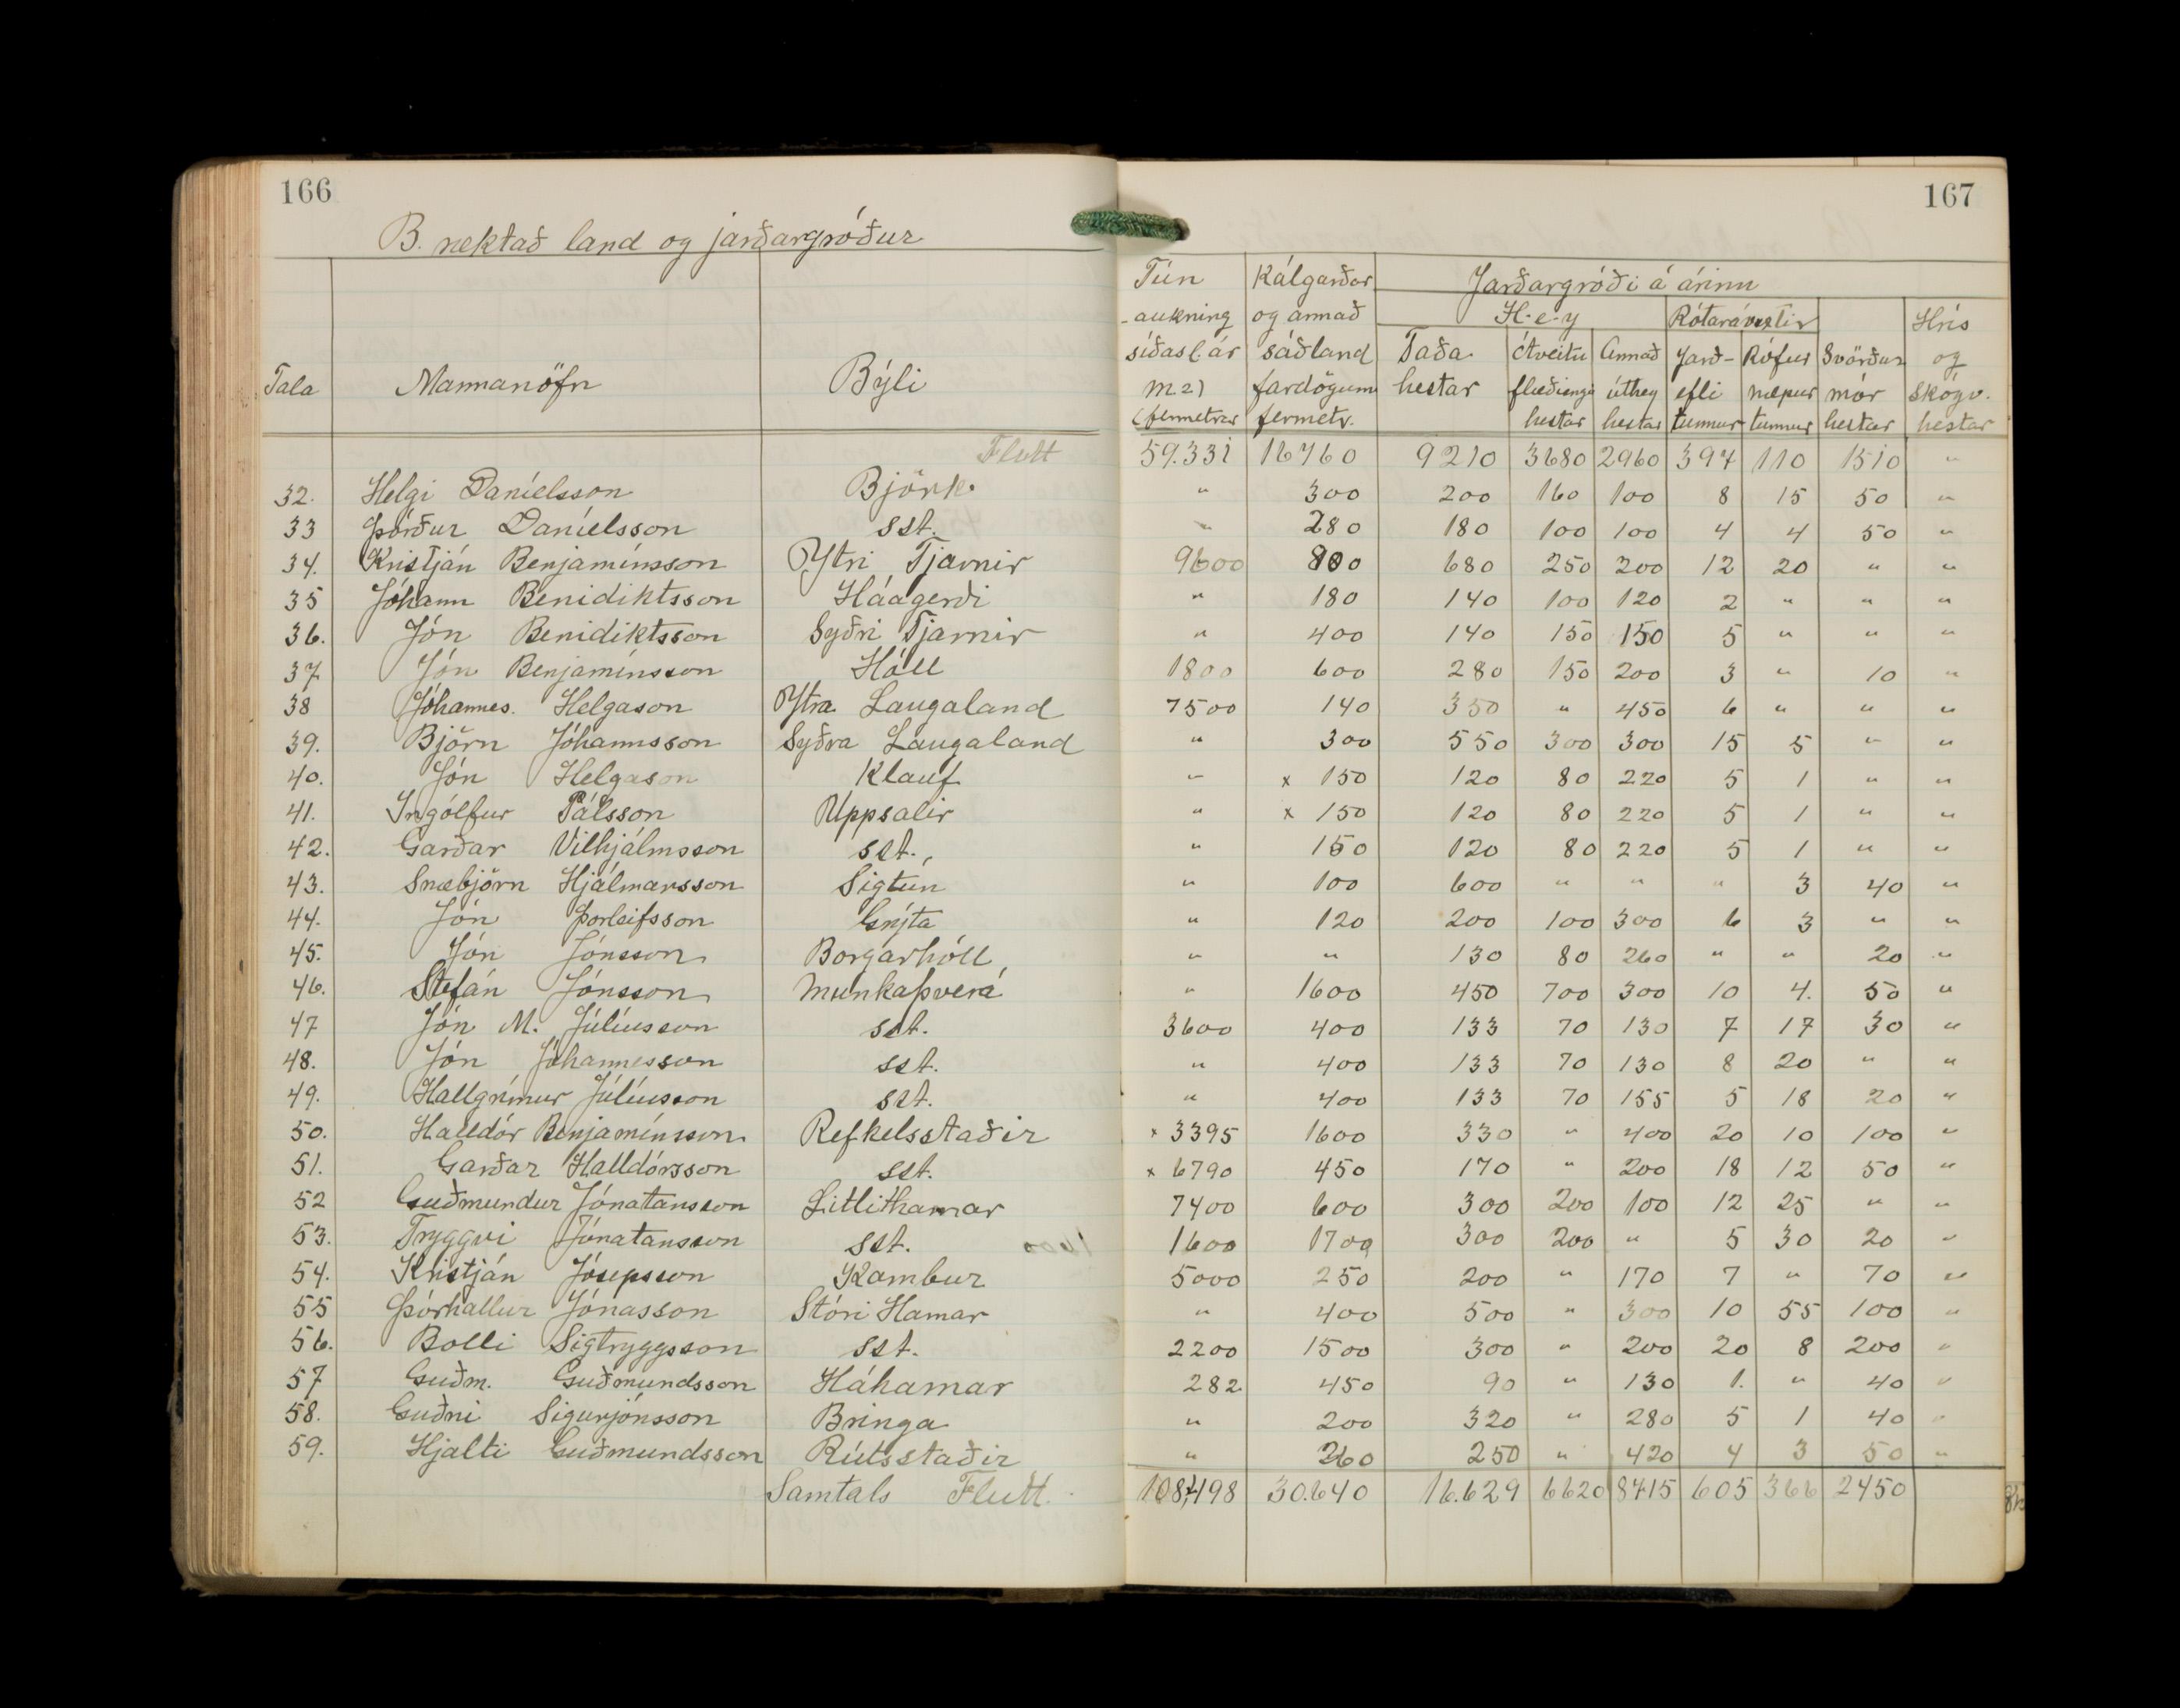 166
167
B. ræktað land og jarðargróður
Tala Mannanöfn Býli
Tún-aukning síðasl. ár m2) (fermetrar
Kálgarðar og annað sáðland fardögum fermetr.
Jarðargróði á árinu
H-e-y
Rótarávextir
Taða hestar
Áveitu flæðiengi hestar
Annað úthey hestar
Jarð-efli tunnur
Rófur næpur tunnur
Svörður mór hestar
Hrís og skógv. hestar
Flutt 59.331 16760 9210 3680 2960 394 110 1510 "
32. Helgi Daníelsson Björk " 300 200 160 100 8 15 50 "
33 Þórður Daníelsson sst. " 280 180 100 100 4 4 50 "
34. Kristján Benjamínsson Ytri Tjarnir 9600 800 680 250 200 12 20 " "
35 Jóhann Benidiktsson Háagerði " 180 140 100 120 2 " " "
36. Jón Benidiktsson Syðri Tjarnir " 400 140 150 150 5 " " "
37 Jón Benjamínsson Hóll 1800 600 280 150 200 3 " 10 "
38 Jóhannes. Helgason Ytra Laugaland 7500 140 350 " 450 6 " " "
39. Björn Jóhannsson Syðra Laugaland " 300 550 300 300 15 5 " "
40. Jón Helgason Klauf " x 150 120 80 220 5 1 " "
41. Ingólfur Pálsson Uppsalir " x 150 120 80 220 5 1 " "
42. Garðar Vilhjálmsson sst. " 150 120 80 220 5 1 " "
43. Snæbjörn Hjálmarsson Sigtún " 100 600 " " " 3 40 "
44. Jón Þorleifsson Grýta " 120 200 100 300 6 3 " "
45. Jón Jónsson Borgarhóll " " 130 80 260 " " 20 "
46. Stefán Jónsson Munkaþverá " 1600 450 700 300 10 4. 50 "
47 Jón M. Júlíusson sst. 3600 400 133 70 130 7 17 30 "
48. Jón Jóhannesson sst. " 400 133 70 130 8 20 " "
49. Hallgrímur Júlíusson sst. " 400 133 70 155 5 18 20 "
50. Halldór Benjamínsson Refkelsstaðir x 3395 1600 330 " 400 20 10 100 "
51. Garðar Halldórsson sst. x 6790 450 170 " 200 18 12 50 "
52 Guðmundur Jónatansson Litlihamar 7400 600 300 200 100 12 25 " "
53. Tryggvi Jónatansson sst. 1600 1700 300 200 " 5 30 20 "
54. Kristján Jósepsson Kambur 5000 250 200 " 170 7 " 70 "
55 Þórhallur Jónasson Stóri Hamar " 400 500 " 300 10 55 100 "
56. Bolli Sigtryggsson sst. 2200 1500 300 " 200 20 8 200 "
57 Guðm. Guðmundsson Háhamar 282 450 90 " 130 1. " 40 "
58. Guðni Sigurjónsson Bringa " 200 320 " 280 5 1 40 "
59. Hjalti Guðmundsson Rútsstaðir " 260 250 " 420 4 3 50 "
Samtals Flutt. 108,498 30.640 16.629 6620 8415 605 366 2450